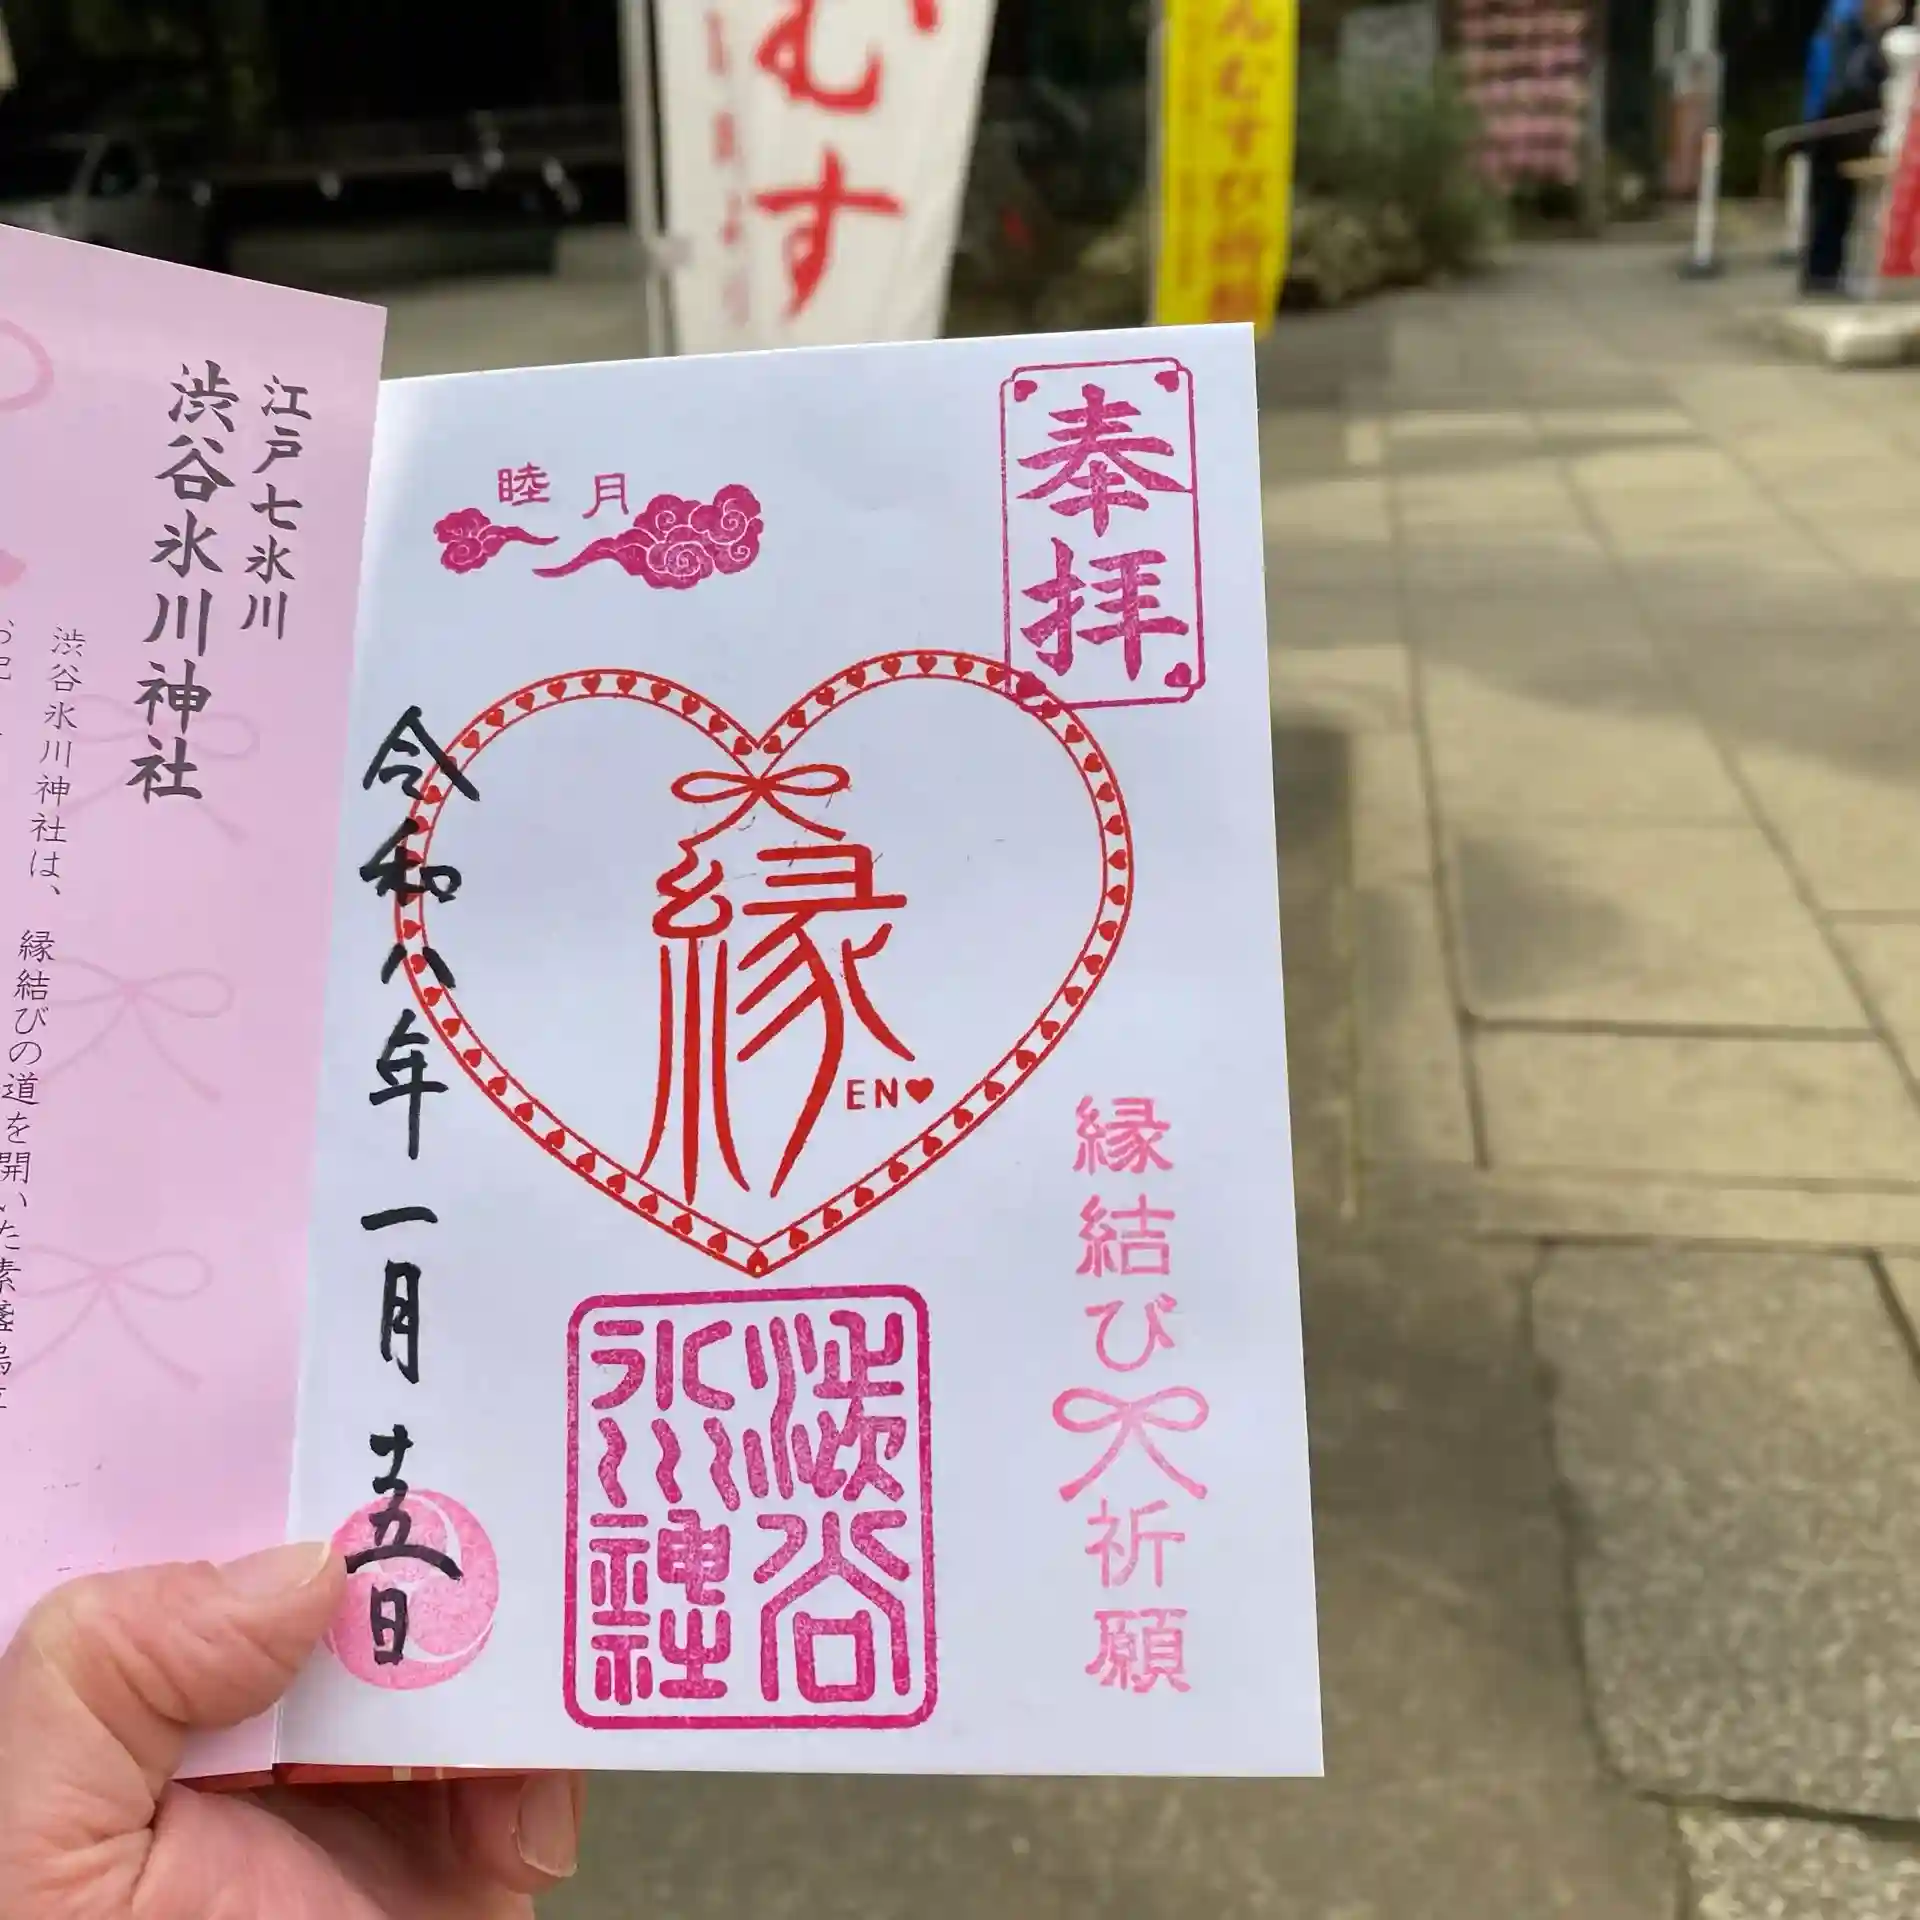 奉拝
睦月
縁
EN
縁結び
祈願
渋谷
氷川
神社
令和八年一月廿五日
江戸七氷川
渋谷氷川神社
渋谷氷川神社は、
縁結びの道を開いた素盞嗚
むす
んむすび祈願